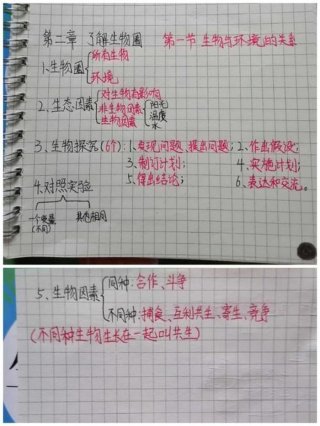 第二章 了解生物圈 第一节 生物与环境的关系
1.生物圈{所有生物
环境
2.生态因素{对生物有影响
非生物因素{阳光
温度
水
生物因素
3、生物探究(6个):1、发现问题、提出问题;2、作出假设;
3、制订计划; 4、实施计划;
5、得出结论; 6、表达和交流。
4.对照实验
一个变量 其他相同
(不同)
5、生物因素{同种:合作、斗争
不同种:捕食、互利共生、寄生、竞争
(不同种生物生长在一起叫共生)